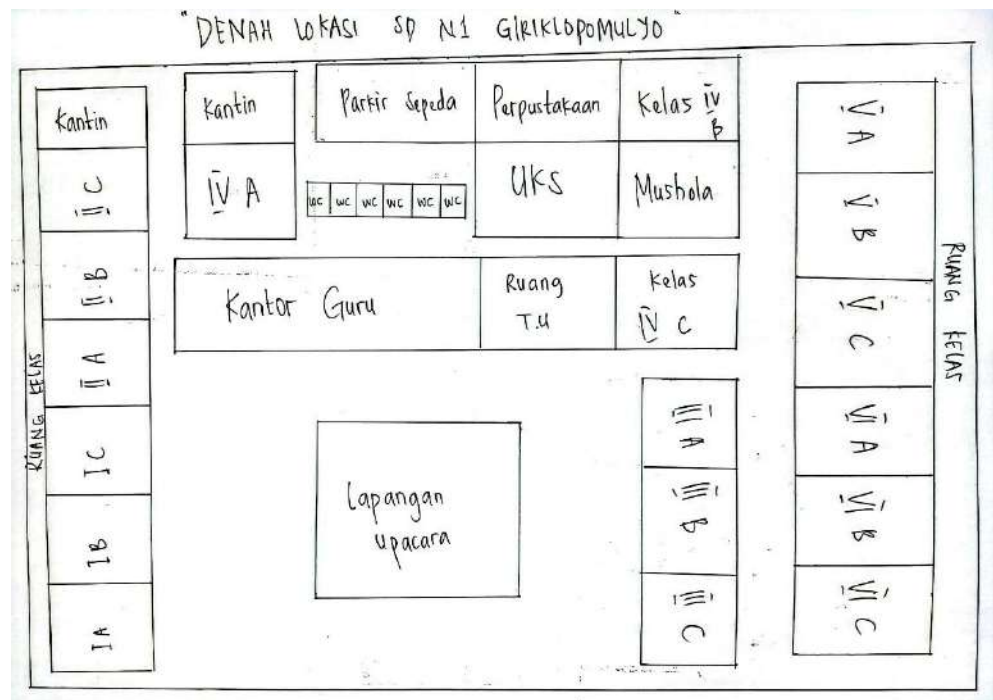 "DENAH LOKASI SD N1 GIRIKLOPOMULYO"
Kantin
II C
II B
II A
I C
I B
I A
RUANG KELAS
Kantin
IV A
Parkir Sepeda
WC WC WC WC WC WC
Perpustakaan
UKS
Kelas IV
B
Mushola
Kantor Guru
Ruang
T.U
Kelas
IV C
Lapangan
upacara
III A
III B
III C
V A
V B
V C
VI A
VI B
VI C
RUANG KELAS